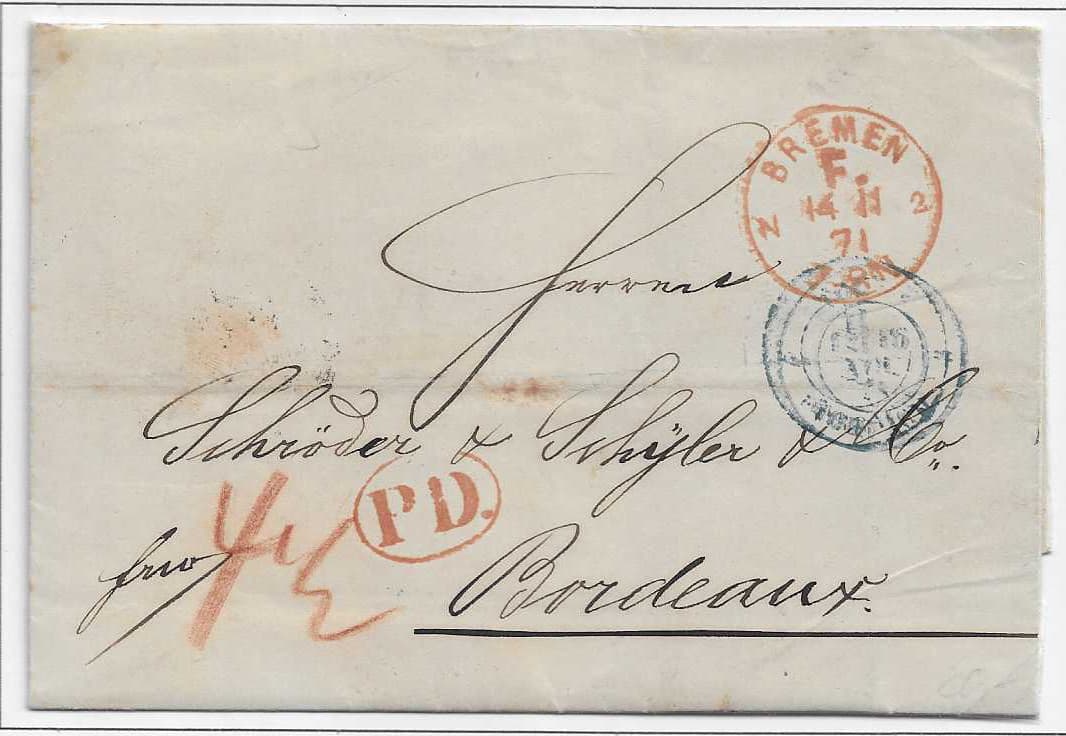 BREMEN
F.
14 11
71
Z 2
Herren
Schröder & Schÿler & Co.
P.D.
frco
4½
Bordeaux.